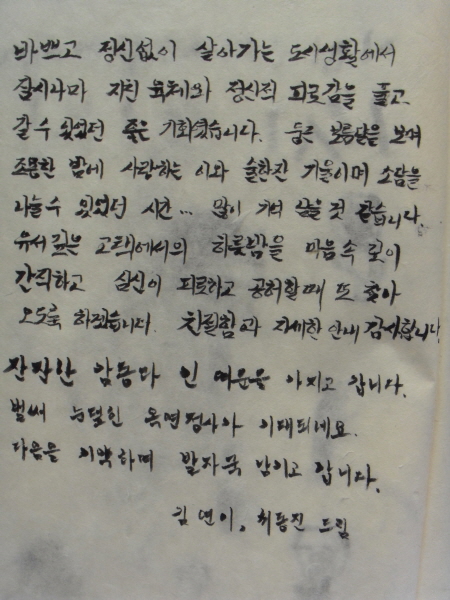 바쁘고 정신없이 살아가는 도시생활에서
잠시나마 지친 육체와 정신적 피로감을 풀고
갈 수 있었던 좋은 기회였습니다. 둥근 보름달을 보며
조용한 밤에 사랑하는 이와 술한잔 기울이며 소담을
나눌수 있었던 시간... 많이 기억 남을 것 같습니다.
유서 깊은 고택에서의 하룻밤을 마음 속 깊이
간직하고 심신이 피로하고 공허할때 또 찾아
오도록 하겠습니다. 친절함과 자세한 안내 감사합니다
잔잔한 여운을 가지고 갑니다.
벌써 옥연정사가 기대되네요.
다음을 기약하며 발자국 남기고 갑니다.
김 연이, 최동진 드림